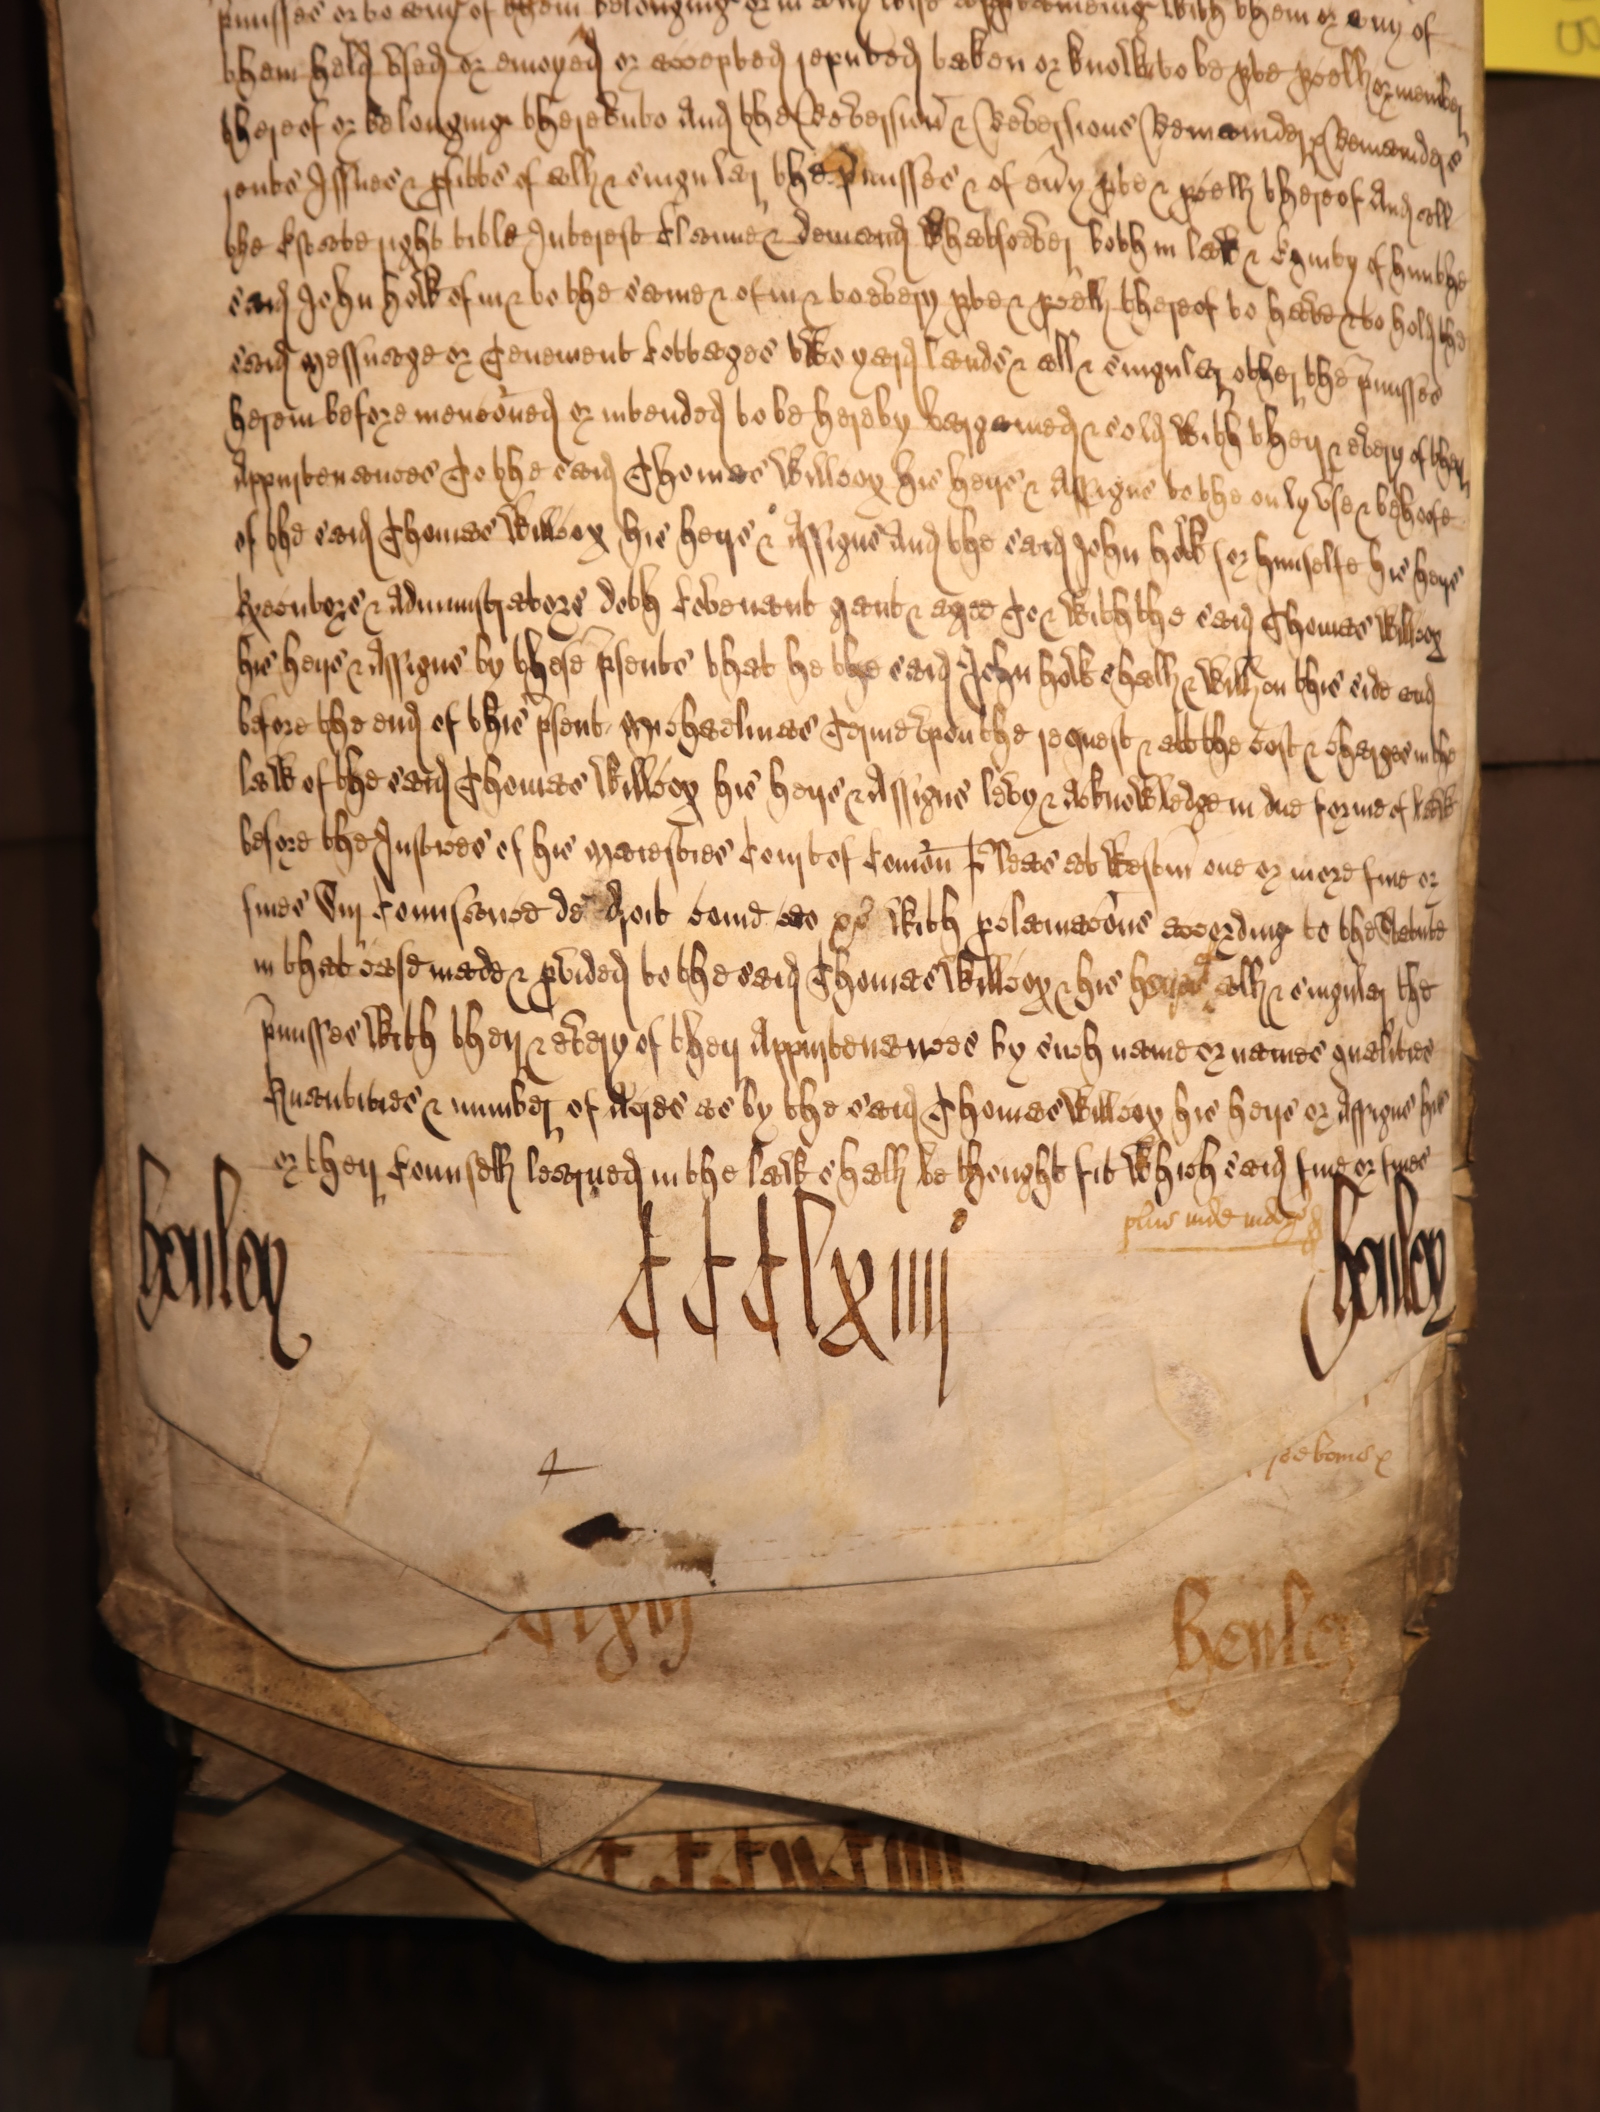 pmisses or to any of them belonging or in any wise appertaineing with them or any of
them held used or enioyed or accepted reputed taken or knowne to be pte pcell or member
thereof or belonging thereunto And the Reversion & Reversions Remainder & Remainders
rents Issues & pfitts of all & singuler the pmisses & of euy pte & pcell thereof And all
the Estate right title Interest Claime & demand whatsoever both in law & Equity of him the
said John how of in & to the same & of in & to every pte & pcell thereof to have & to hold the
said messuage or Tenement Cottages two yard lands & all & singuler other the pmisses
herein before menconed or intended to be hereby bargained & sold with their & every of their
Appurtenances To the said Thomas Willcox his heires & Assignes to the only use & behoofe
of the said Thomas Willcox his heires & Assignes And the said John how for himselfe his heires
Executors & Administrators doth Covenant grant & agree To & with the said Thomas Willcox
his heires & Assignes by these psents that he the said John how shall & will on this side and
before the end of this psent Michaelmas Terme upon the request & att the cost & charges in the
law of the said Thomas Willcox his heires & Assignes levy & acknowledge in due forme of law
before the Justices of his Maiesties Court of Comon Pleas at Westm one or more fine or
fines Sur Conusance de droit come ceo &c with pclamacons according to the Statute
in that case made & pvided to the said Thomas Willcox & his heires all & singuler the
pmisses with their & every of their Appurtenances by such name or names qualities
Quantities & number of Acres as by the said Thomas Willcox his heires or Assignes his
or their Counsell learned in the law shall be thought fit which said fine or fines
plus inde
henley CCClxiiij henley
henley